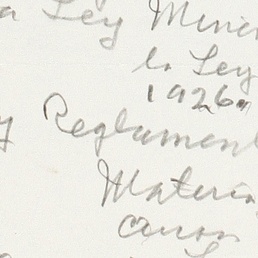 Ley Mine
la Ley
1926.
y Reglament
Materia